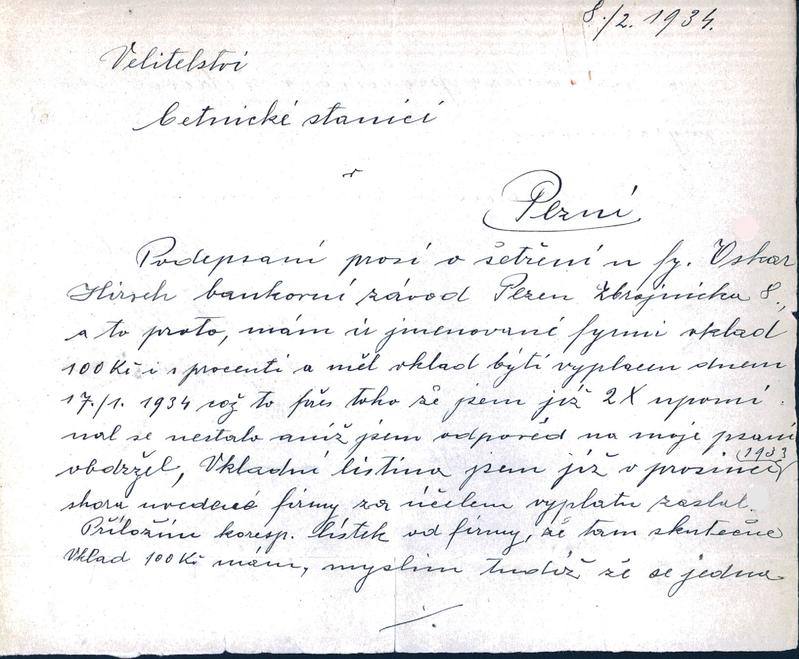 8./2. 1934.
Velitelství
četnické stanici
v
Plzni
Podepsaní prosí o šetření u fy. Oskar
Hirsch bankovní závod Plzen Zbrojnicka 8.,
a to proto, mám u jmenované fyrmi vklad
100 Kč i s procenti a měl vklad býti vyplacen dnem
17./1. 1934 což to přes toho že jsem již 2X upomí
nal se nestalo aniž jsem odpověd na moje psaní
obdržel, Vkladní listina jsem již v prosinci (1933)
shora uvedené firmy za účelem vyplatu zaslal.
Příložím koresp. lístek od firmy, že tam skutečne
Vklad 100 Kč mám, myslim tudiž že se jedna
./.